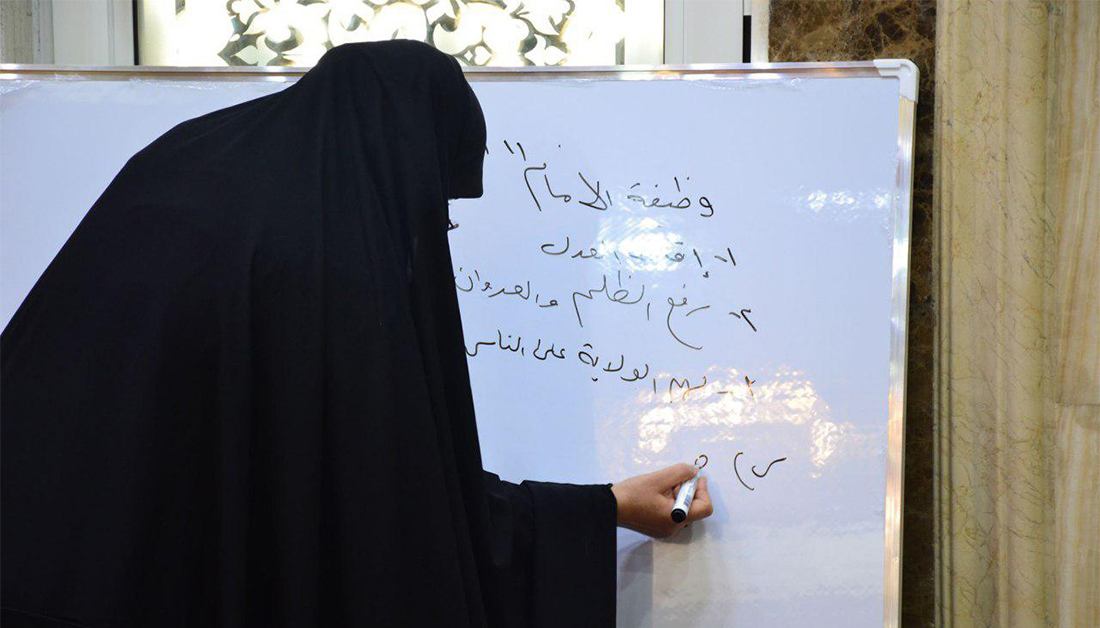 وظيفة الإمام "
١- إقامة العدل
٢- رفع الظلم والعدوان
٣- لهم الولاية على الناس
س)